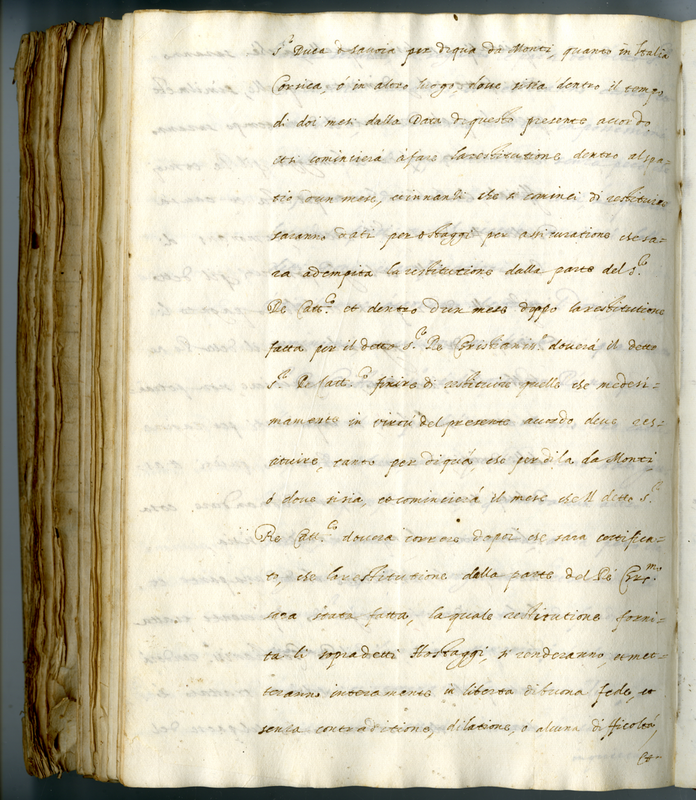 S.r Duca di Savoia per di qua da Monti, quanto in Italia
Corsica, ó in altro luogo, dove sisia, dentro il tempo
di doi mesi dalla Data di questo presente accordo,
et si comincierà à fare la restitutione dentro al spa=
tio d'un mese, et innanzi che si cominci di restituire
saranno dati per ostaggi per assicuratione che sa=
ra adempita la restitutione dalla parte del S.r
Re Catt.co et dentro d'un mese doppo la restitutione
fatta per il detto S.r Re Cristianis.o doverá il detto
S.r Re Catt.co finire di restituire quello che medesi=
mamente in virtù del presente accordo deve res=
tituire, tanto per di quá, che per di la da Monti
ó dove sisia, et comincierá il mese che il detto S.r
Re Catt.co doverà correre dapoi che sara certifica=
to, che la restitutione dalla parte del Re Cris.mo
sara stata fatta, la quale restitutione forni=
ta li sopradetti Hostaggi, si renderanno, et met=
teranno interamente in liberta di buona fede, et
senza contraditione, dilatione, ó alcuna dificoltá,
et